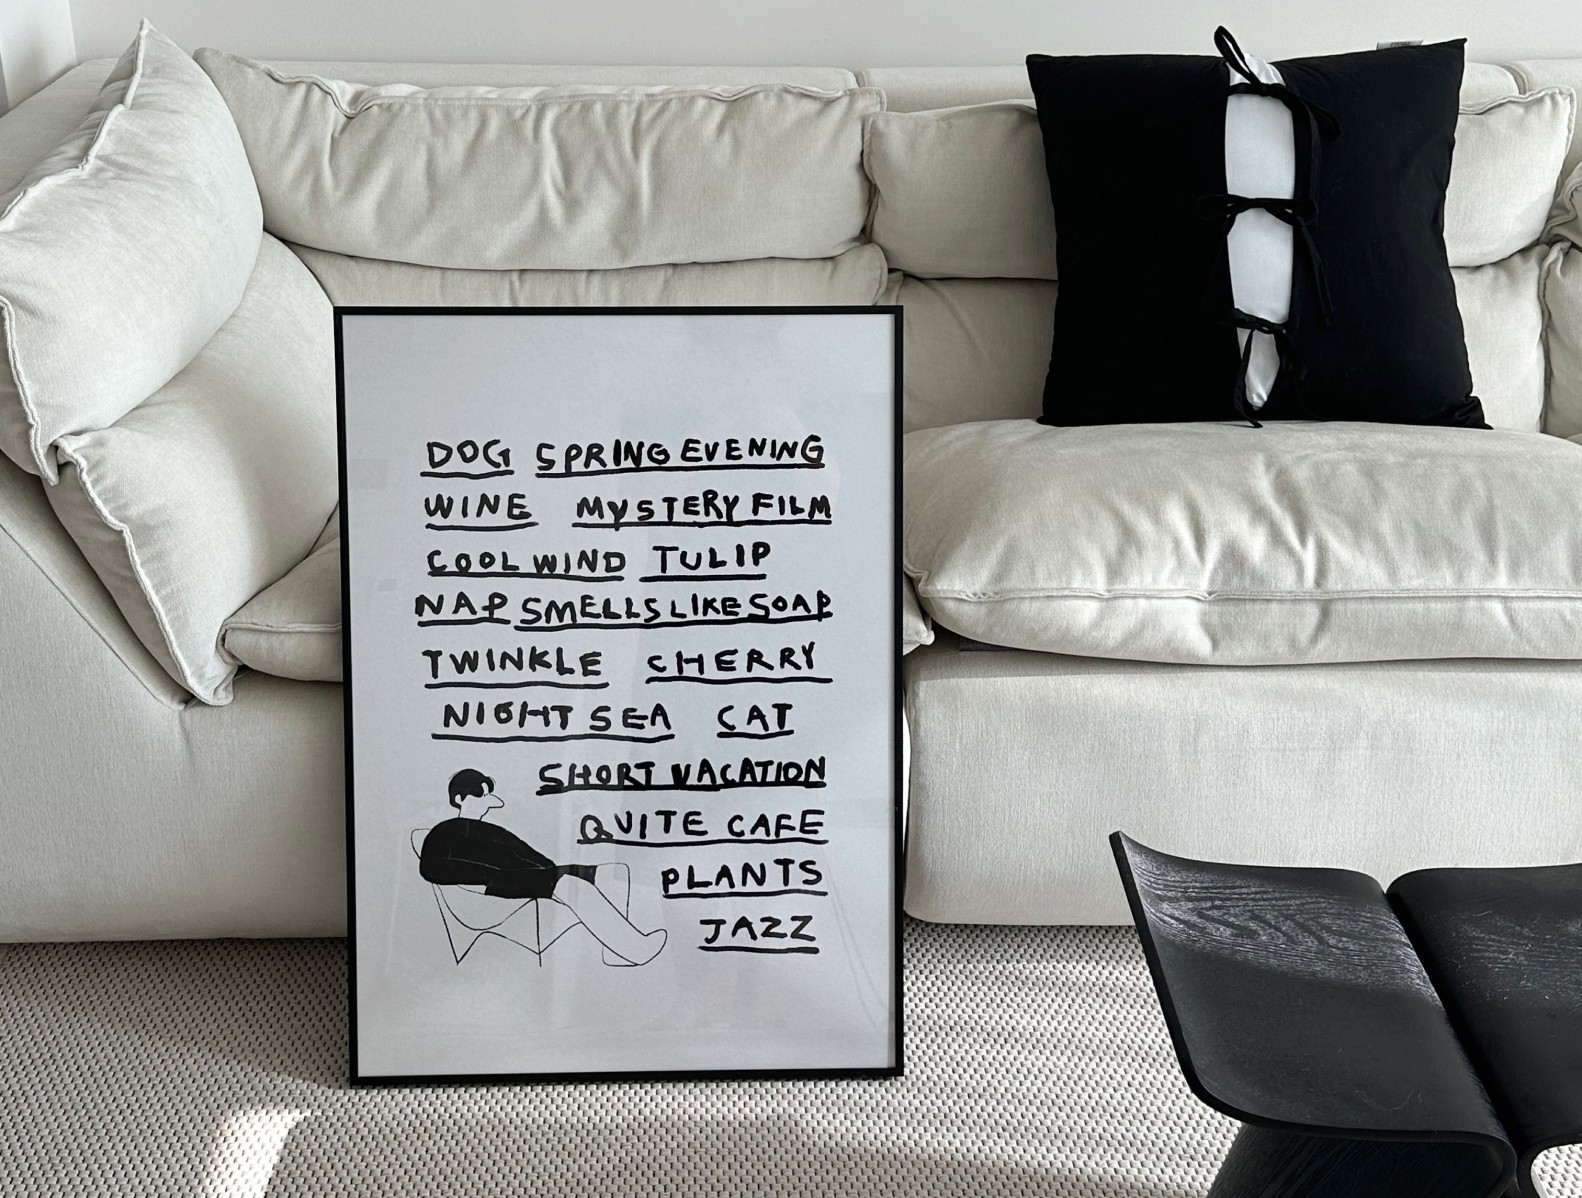 DOG SPRING EVENING
WINE MYSTERY FILM
COOL WIND TULIP
NAP SMELLS LIKE SOAP
TWINKLE CHERRY
NIGHT SEA CAT
SHORT VACATION
QUITE CAFE
PLANTS
JAZZ